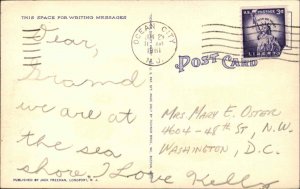 THIS SPACE FOR WRITING MESSAGES
Dear,
Grand
we are
at the sea
shore. I Love Kelly
OCEAN CITY
N.J.
U.S. POSTAGE 3¢
LIBERTY
POST CARD
MRS MARY E. OSTER
4604-48th ST, N.W.
WASHINGTON, D.C.
PUBLISHED BY JACK FREEMAN, LONGPORT, N. J.